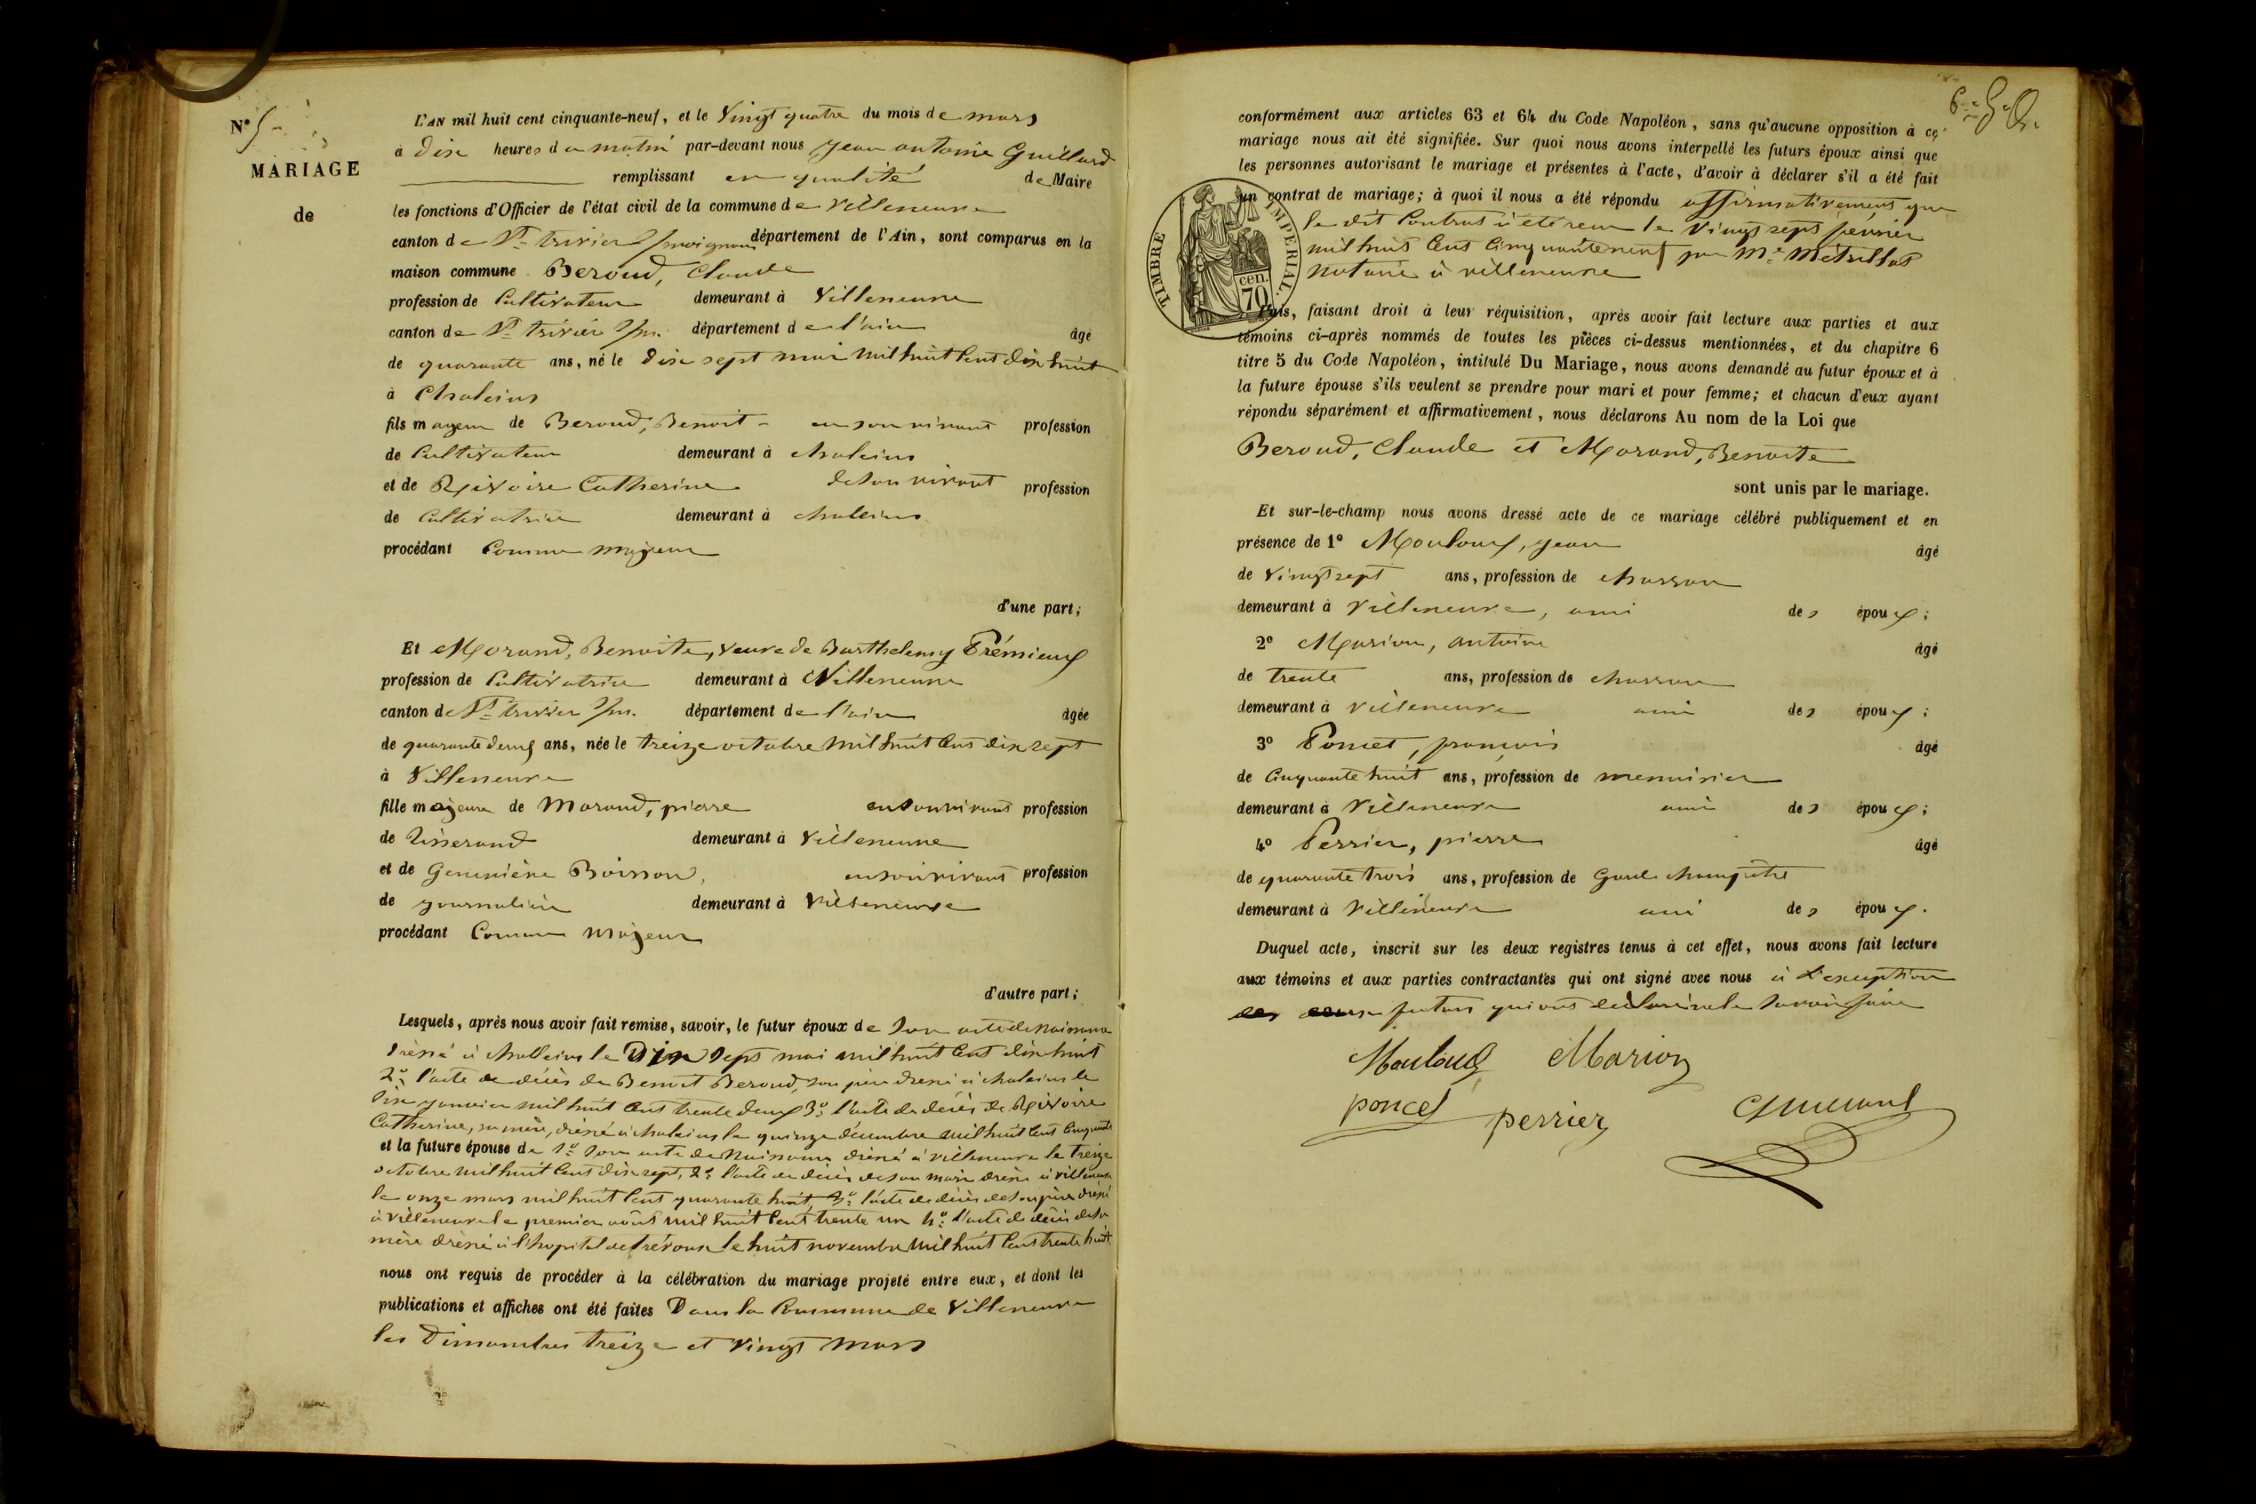 N° 5
MARIAGE
de
L'AN mil huit cent cinquante-neuf, et le vingt quatre du mois de mars
à dix heures du matin par-devant nous jean antoine Guillard
remplissant en qualité de Maire
les fonctions d'Officier de l'état civil de la commune de villeneuve
canton de St. trivier s/moignans département de l'Ain, sont comparus en la
maison commune Beroud, Claude
profession de Cultivateur demeurant à Villeneuve
canton de St. trivier s/m. département de l'ain âgé
de quarante ans, né le dix sept mai mil huit cent dix huit
à Chaleins
fils majeur de Beroud, Benoit en son vivant profession
de Cultivateur demeurant à chaleins
et de Rivoire Catherine de son vivant profession
de Cultivatrice demeurant à chaleins
procédant Comme majeur
d'une part;
Et Morand, Benoite, veuve de Barthelemy Prémieux
profession de Cultivatrice demeurant à Villeneuve
canton de St. trivier s/m. département de l'ain âgée
de quarante deux ans, née le treize octobre mil huit cent dix sept
à Villeneuve
fille majeure de Morand, pierre en son vivant profession
de tisserand demeurant à villeneuve
et de Genevière Boisson, en son vivant profession
de journalière demeurant à villeneuve
procédant Comme majeure
d'autre part;
Lesquels, après nous avoir fait remise, savoir, le futur époux de son acte de naissance
dréssé à challeins le Dix sept mai mil huit cent dix huit
2° l'acte de décès de Benoit Beroud, son père dressé à chaleins le
dix janvier mil huit cent trente deux 3° l'acte de décès de Rivoire
Catherine, sa mère, dréssé à chaleins le quinze décembre mil huit cent cinquante
et la future épouse de 1° son acte de naissance dréssé à villeneuve le treize
octobre mil huit cent dix sept, 2° l'acte de décès de son mari dréssé à villeneuve
le onze mars mil huit cent quarante huit 3° l'acte de décès de son père dressé
à villeneuve le premier août mil huit cent trente un 4° l'acte de décès de sa
mère dréssé à l'hopital de trévoux le huit novembre mil huit cent trente huit
nous ont requis de procéder à la célébration du mariage projeté entre eux, et dont les
publications et affiches ont été faites Dans la Commune de Villeneuve
les Dimanches treize et vingt mars
conformément aux articles 63 et 64 du Code Napoléon, sans qu'aucune opposition à ce
mariage nous ait été signifiée. Sur quoi nous avons interpellé les futurs époux ainsi que
les personnes autorisant le mariage et présentes à l'acte, d'avoir à déclarer s'il a été fait
un contrat de mariage; à quoi il nous a été répondu affirmativement que
le dit Contrat à été reçu le vingt sept février
mil huit cent cinquante neuf par Me. Métrillot
notaire à villeneuve
TIMBRE IMPERIAL.
cen.
70
Puis, faisant droit à leur réquisition, après avoir fait lecture aux parties et aux
témoins ci-après nommés de toutes les pièces ci-dessus mentionnées, et du chapitre 6
titre 5 du Code Napoléon, intitulé Du Mariage, nous avons demandé au futur époux et à
la future épouse s'ils veulent se prendre pour mari et pour femme; et chacun d'eux ayant
répondu séparément et affirmativement, nous déclarons Au nom de la Loi que
Beroud, Claude et Morand, Benoite
sont unis par le mariage.
Et sur-le-champ nous avons dressé acte de ce mariage célébré publiquement et en
présence de 1° Mouloux, jean âgé
de vingt sept ans, profession de charron
demeurant à villeneuve, ami des époux;
2° Marion, antoine âgé
de trente ans, profession de charron
demeurant à villeneuve ami des époux;
3° Poncet, françois âgé
de Cinquante huit ans, profession de menuisier
demeurant à villeneuve ami des époux;
4° Perrier, pierre âgé
de quarante trois ans, profession de Garde champêtre
demeurant à villeneuve ami des époux.
Duquel acte, inscrit sur les deux registres tenus à cet effet, nous avons fait lecture
aux témoins et aux parties contractantes qui ont signé avec nous à l'exception
des futurs qui ont déclaré ne le savoir faire
Mouloud Marion
poncet perrier Guillard